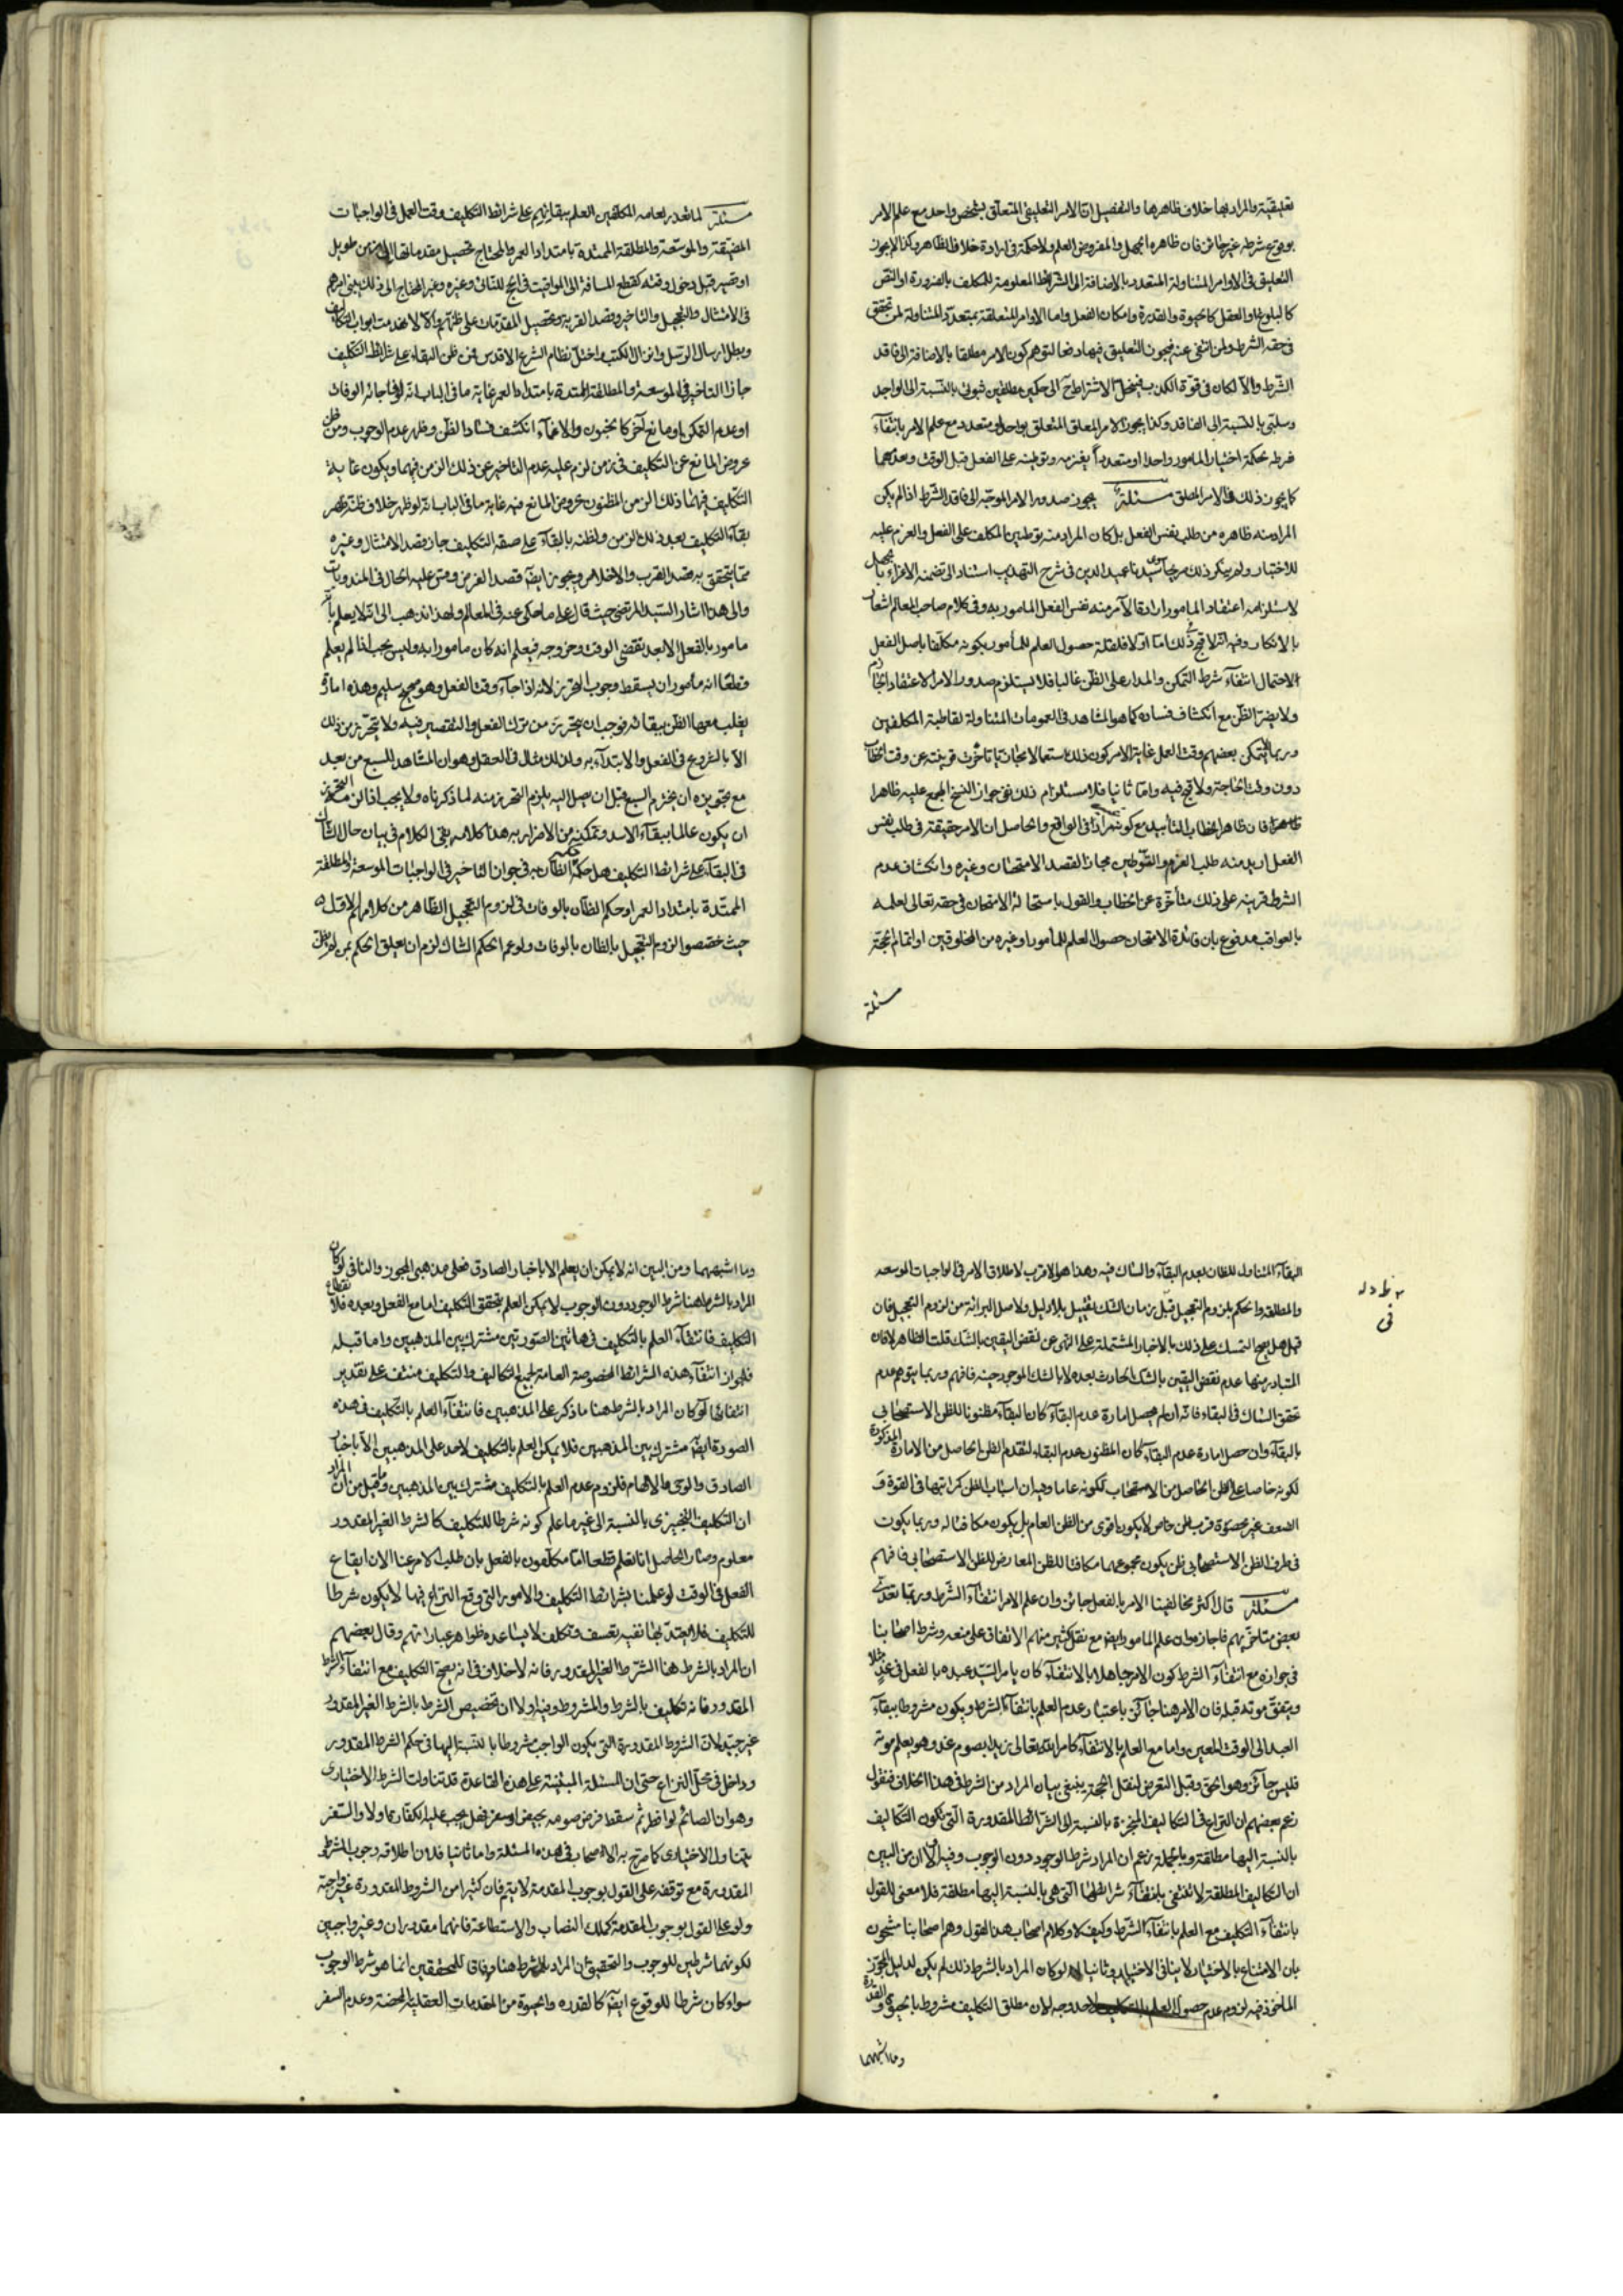 تعليقية والمراد بها خلاف ظاهرها والتفصيل ان الامر التعليقى المتعلق بشخص واحد مع علم الامر
بوقوع شرطه غير جائز فان ظاهره الجهل والمفروض العلم ولا حكمة فى ارادة خلاف الظاهر وكذا لا يجوز
التعليق فى الاوامر المتناولة المتعدد بالاضافة الى الشرائط المعلومة للمكلف بالضرورة او النص
كالبلوغ والعقل كالحيوة والقدرة وامكان الفعل واما الاوامر المتعلقة بمتعدد المتناولة لمن تحقق
فى حقه الشرط ولمن انتفى عنه فيجوز التعليق فيها دفعا لتوهم كون الامر مطلقا بالاضافة الى فاقد
الشرط والا لكان فى قوة الكذب فينحل الاشتراط الى حكمين مطلقين ثبوتى بالنسبة الى الواجد
وسلبى بالنسبة الى الفاقد وكذا يجوز الامر المعلق المتعلق بواحد او متعدد مع علم الامر بانتفاء
شرطه لحكمة اختبار المامور واحدا او متعددا بعزمه وتوطينه على الفعل قبل الوقت وبعدهما
كما يجوز ذلك فى الامر المطلق مسئلة يجوز صدور الامر الموجه الى فاقد الشرط اذا لم يكن
المراد منه ظاهره من طلب نفس الفعل بل كان المراد منه توطين المكلف على الفعل والعزم عليه
للاختبار ولم ينكر ذلك سيدنا عميد الدين فى شرح التهذيب استنادا الى تضمنه الاغراء بالجهل
لاستلزامه اعتقاد المامور ارادة الآمر منه نفس الفعل المامور به وفى كلام صاحب المعالم اشعار
بالانكار وفيه انه لا قبح فى ذلك اما اولا فلقلة حصول العلم للمأمور بكونه مكلفا باصل الفعل
لاحتمال انتفاء شرط التمكن والمدار على الظن غالبا فلا يستلزم صدور الامر الاعتقاد الجازم
ولا يضر الظن مع انكشاف فساده كما هو المشاهد فى العمومات المتناولة لقاطبة المكلفين
وربما لم يتمكن بعضهم وقت العمل غاية الامر كون ذلك استعمالا مجازيا تاخرت قرينته عن وقت الخطاب
دون وقت الحاجة ولا قبح فيه واما ثانيا فلاستلزام ذلك نفى جواز النسخ المجمع عليه ظاهرا
فان ظاهر الخطاب التأبيد مع كونه غير مراد فى الواقع والحاصل ان الامر حقيقة فى طلب نفس
الفعل اريد منه طلب العزم والتوطين مجازا لقصد الامتحان وغيره وانكشاف عدم
الشرط قرينة على ذلك متأخرة عن الخطاب والقول باستحالة الامتحان فى حقه تعالى لعلمه
بالعواقب مدفوع بان فائدة الامتحان حصول العلم للمأمور او غيره من المخلوقين او اتمام الحجة
مسئلة
مسئلة لما تعذر لعامة المكلفين العلم ببقائهم على شرائط التكليف وقت العمل فى الواجبات
المضيقة والموسعة والمطلقة الممتدة بامتداد العمر والمحتاج تحصيل مقدماتها الى زمن طويل
او قصير قبل دخول وقته كقطع المسافة الى المواقيت فى الحج للنائى وغيره وغير المحتاج الى ذلك يبنى امرهم
فى الامتثال والتعجيل والتاخير وقصد القربة وتحصيل المقدمات على ظنهم والا لانهدمت ابواب التكاليف
وبطل ارسال الرسل وانزال الكتب واختل نظام الشرع الاقدس فمن ظن البقاء على شرائط التكليف
جاز التاخير فى الموسعة والمطلقة الممتدة بامتداد العمر غاية ما فى الباب انه لو فاجائه الوفات
او عدم التمكن او مانع آخر كالجنون والاغماء انكشف فساد الظن وظهر عدم الوجوب ومن ظن
عروض المانع عن التكليف فى زمن لزم عليه عدم التاخير عن ذلك الزمن فيهما ويكون غاية
التكليف فيهما ذلك الزمن المظنون عروض المانع فيه غاية ما فى الباب انه لو ظهر خلاف ظنه ظهر
بقاء التكليف بعد ذلك الزمن ولظنه بالبقاء على صفة التكليف جاز قصد الامتثال وغيره
مما يتحقق به قصد القرب والاخلاص ويجوز ايضا قصد الفرض وقس عليه الحال فى المندوبات
والى هذا اشار السيد المرتضى حيث قال على ما حكى عنه فى المعالم ولهذا نذهب الى انه لا يعلم بانه
مامور بالفعل الا بعد تقضى الوقت وخروجه فيعلم انه كان مامورا به وليس يجب اذا لم يعلم
قطعا انه مأمور ان يسقط وجوب التحرز لانه اذا جاء وقت الفعل وهو صحيح سليم وهذه امارة
يغلب معها الظن ببقائه فوجب ان يتحرز من ترك الفعل والتقصير فيه ولا يتحرز من ذلك
الا بالشروع فى الفعل والابتداء به ولذلك مثال فى العقل وهو ان المشاهد للسبع من بعد
مع تجويزه ان يخترم السبع قبل ان يصل اليه يلزم التحرز منه لما ذكرناه ولا يجب اذا لزمه التحرز
ان يكون عالما ببقاء الاسد وتمكنه من الاضرار به هذا كلامه بقى الكلام فى بيان حال الشاك
فى البقاء على شرائط التكليف هل حكمه حكم الظان به فى جواز التاخير فى الواجبات الموسعة والمطلقة
الممتدة بامتداد العمر او حكم الظان بالوفات فى لزوم التعجيل الظاهر من كلامهم الاول
حيث خصصوا لزوم التعجيل بالظان بالوفات ولو عم الحكم الشاك لزم ان يعلق الحكم بمن لم يظن
البقاء المتناول للظان لعدم البقاء والشاك فيه وهذا هو الاقرب لاطلاق الامر فى الواجبات الموسعة
والمطلقة والحكم بلزوم التعجيل قبل زمان الشك تقييد بلا دليل ولاصل البرائة من لزوم التعجيل فان
قيل هل يصح التمسك على ذلك بالاخبار المشتملة على النهى عن نقض اليقين بالشك قلت الظاهر لا فان
المتبادر منها عدم نقض اليقين بالشك الحادث بعده لا بالشك الموجود حينه فافهم وربما يتوهم عدم
تحقق الشاك فى البقاء فانه ان لم يحصل امارة عدم البقاء كان البقاء مظنونا للظن الاستصحابى
بالبقاء وان حصل امارة عدم البقاء كان المظنون عدم البقاء لتقدم الظن الحاصل من الامارة المذكورة
لكونه خاصا على الظن الحاصل من الاستصحاب لكونه عاما وفيه ان اسباب الظن كمراتبها فى القوة و
الضعف غير محصورة فرب ظن خاص لا يكون اقوى من الظن العام بل يكون مكافئا له وربما يكون
فى طرف الظن الاستصحابى ظن يكون مجموعهما مكافئا للظن المعارض للظن الاستصحابى فافهم
مسئلة قال اكثر مخالفينا الامر بالفعل جائز وان علم الامر انتفاء الشرط وربما تعدى
بعض متاخريهم فاجازه وان علم المامور ايضا مع نقل كثير منهم الاتفاق على منعه وشرط اصحابنا
فى جوازه مع انتفاء الشرط كون الامر جاهلا بالانتفاء كان يامر السيد عبده بالفعل فى غد مثلا
ويتفق موته قبله فان الامر هنا جائز باعتبار عدم العلم بانتفاء الشرط ويكون مشروطا ببقاء
العبد الى الوقت المعين واما مع العلم بالانتفاء كامر الله تعالى زيدا بصوم غد وهو يعلم موته
فليس جائز وهو الحق وقبل التعرض لنقل الحجة ينبغى بيان المراد من الشرط فى هذا الخلاف فنقول
زعم بعضهم ان النزاع فى التكاليف المنجزة بالنسبة الى الشرائط المقدورة التى تكون التكاليف
بالنسبة اليها مطلقة وبالجملة زعم ان المراد شرط الوجود دون الوجوب وفيه اولا ان من البين
ان التكاليف المطلقة لا تنتفى بانتفاء شرائطها التى هى بالنسبة اليها مطلقة فلا معنى للقول
بانتفاء التكليف مع العلم بانتفاء الشرط وكيف لا وكلام اصحاب هذا القول وهم اصحابنا مشحون
بان الامتناع بالاختيار لا ينافى الاختيار وثانيا لو كان المراد بالشرط ذلك لم يكن لدليل المجوز
الماخوذ فيه لزوم عدم حصول العلم بالتكليف لاحد وجه لان مطلق التكليف مشروط بالحيوة والقدرة
وما اشبههما
وما اشبههما ومن البين انه لا يمكن ان يعلم الا باخبار الصادق فعلى مذهبى المجوز والنافى لو كان
المراد بالشرط هنا شرط الوجود دون الوجوب لا يمكن العلم بتحقق التكليف اما مع الفعل وبعده فلانقطاع
التكليف فانتفاء العلم بالتكليف فى هاتين الصورتين مشترك بين المذهبين واما قبله
فلجواز انتفاء هذه الشرائط المخصوصة العامة لجميع التكاليف والتكليف منتف على تقدير
انتفائها لو كان المراد بالشرط هنا ما ذكر على المذهبين فانتفاء العلم بالتكليف فى هذه
الصورة ايضا مشترك بين المذهبين فلا يمكن العلم بالتكليف لاحد على المذهبين الا باخبار
الصادق والوحى والالهام فلزوم عدم العلم بالتكليف مشترك بين المذهبين وما قيل من ان المراد
ان التكليف التنجيزى بالنسبة الى غير ما علم كونه شرطا للتكليف كالشرط الغير المقدور
معلوم وصار الحاصل انا نعلم قطعا انا مكلفون بالفعل بان طلب الامر عنا الان ايقاع
الفعل فى الوقت لو علمنا بشرائط التكليف والامور التى وقع النزاع فيها لا يكون شرطا
للتكليف فلا يعتد بها نفيه تعسف وتكلف لا يساعده ظواهر عباراتهم وقال بعضهم
ان المراد بالشرط هنا الشرط الغير المقدور فانه لا خلاف فى انه يصح التكليف مع انتفاء الشرط
المقدور فانه تكليف بالشرط والمشروط وفيه اولا ان تخصيص الشرط بالشرط الغير المقدور
غير جيد لان الشروط المقدورة التى يكون الواجب مشروطا بالنسبة اليها فى حكم الشرط المقدور
وداخل فى محل النزاع حتى ان المسئلة المبتنية على هذه القاعدة قد تناولت الشرط الاختيارى
وهو ان الصائم لو افطر ثم سقط فرض صومه بحيض او سفر فهل يجب عليه الكفارة ام لا والسفر
يتناول الاختيارى كما صرح به الاصحاب فى هذه المسئلة واما ثانيا فلان اطلاقه وجوب الشرط
المقدورة مع توقفه على القول بوجوب المقدمة لا يتم فان كثيرا من الشروط المقدورة غير واجبة
ولو على القول بوجوب المقدمة كملك النصاب والاستطاعة فانهما مقدوران وغير واجبين
لكونهما شرطين للوجوب والتحقيق ان المراد بالشرط هنا وفاقا للمحققين انما هو شرط الوجوب
سواء كان شرطا للوقوع ايضا كالقدرة والحيوة من المقدمات العقلية المحضة وعدم السفر